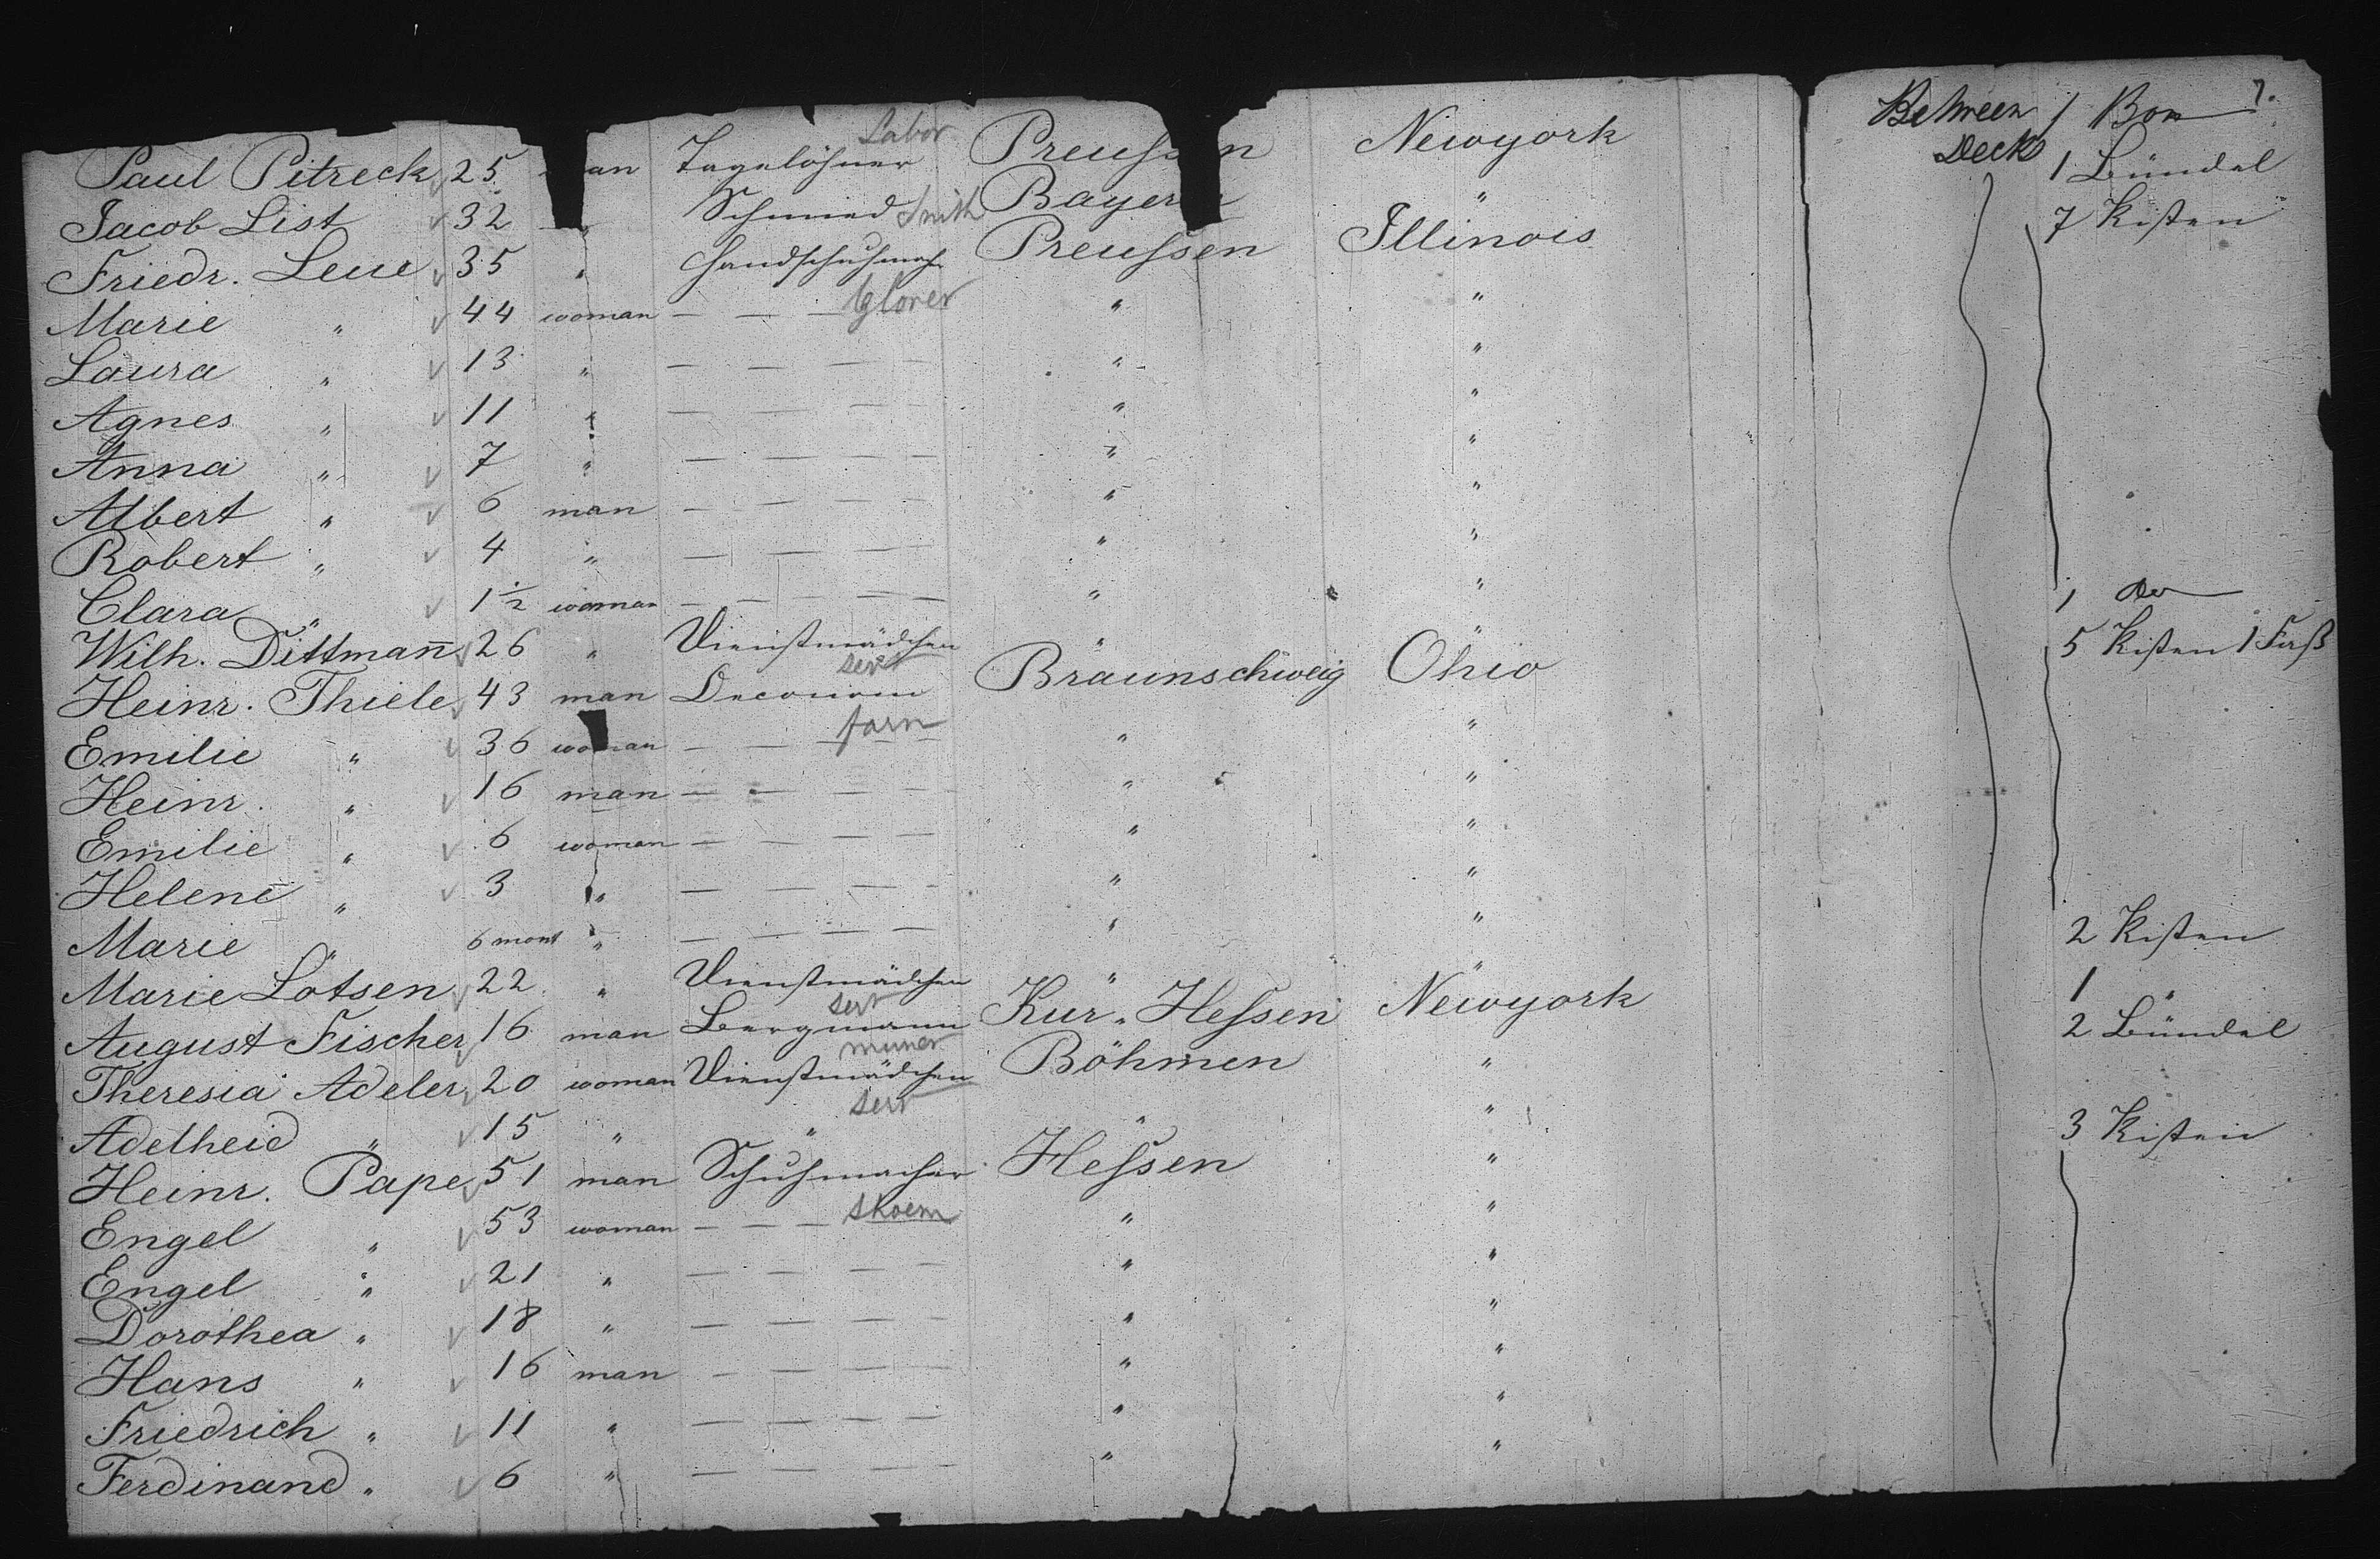 7.
Labor
Paul Pitreck 25 man Tagelöhner Preussen Newyork Between Decks 1 Box
Jacob List 32 " Schmied Smith Bayern " 1 Bündel
Friedr. Leue 35 " Handschuhmach Preussen Illinois 7 Kisten
Marie " 44 woman — — — Glover " "
Laura " 13 " — — — — " "
Agnes " 11 " — — — — " "
Anna " 7 " — — — — " "
Albert " 6 man — — — — " "
Robert " 4 " — — — — " "
Clara " 1½ woman — — — — " "
Wilh. Dittman̄ 26 " Dienstmädchen " " 1 do
servt
Heinr. Thiele 43 man Oeconom Braunschweig Ohio 5 Kisten 1 Faß
farm
Emilie " 36 woman — — — — " "
Heinr. " 16 man — — — — " "
Emilie " 6 woman — — — — " "
Helene " 3 " — — — — " "
Marie " 6 mont " — — — — " "
Marie Lötsen 22 " Dienstmädchen " " 2 Kisten
servt
August Fischer 16 man Bergmann Kur-Hessen Newyork 1 "
miner
Theresia Adeler 20 woman Dienstmädchen Böhmen " 2 Bündel
servt
Adelheid " 15 " " " "
Heinr. Pape 51 man Schuhmacher Hessen " 3 Kisten
Engel " 53 woman — — — skoem " "
Engel " 21 " — — — — " "
Dorothea " 18 " — — — — " "
Hans " 16 man — — — — " "
Friedrich " 11 " — — — — " "
Ferdinand " 6 " — — — — " "